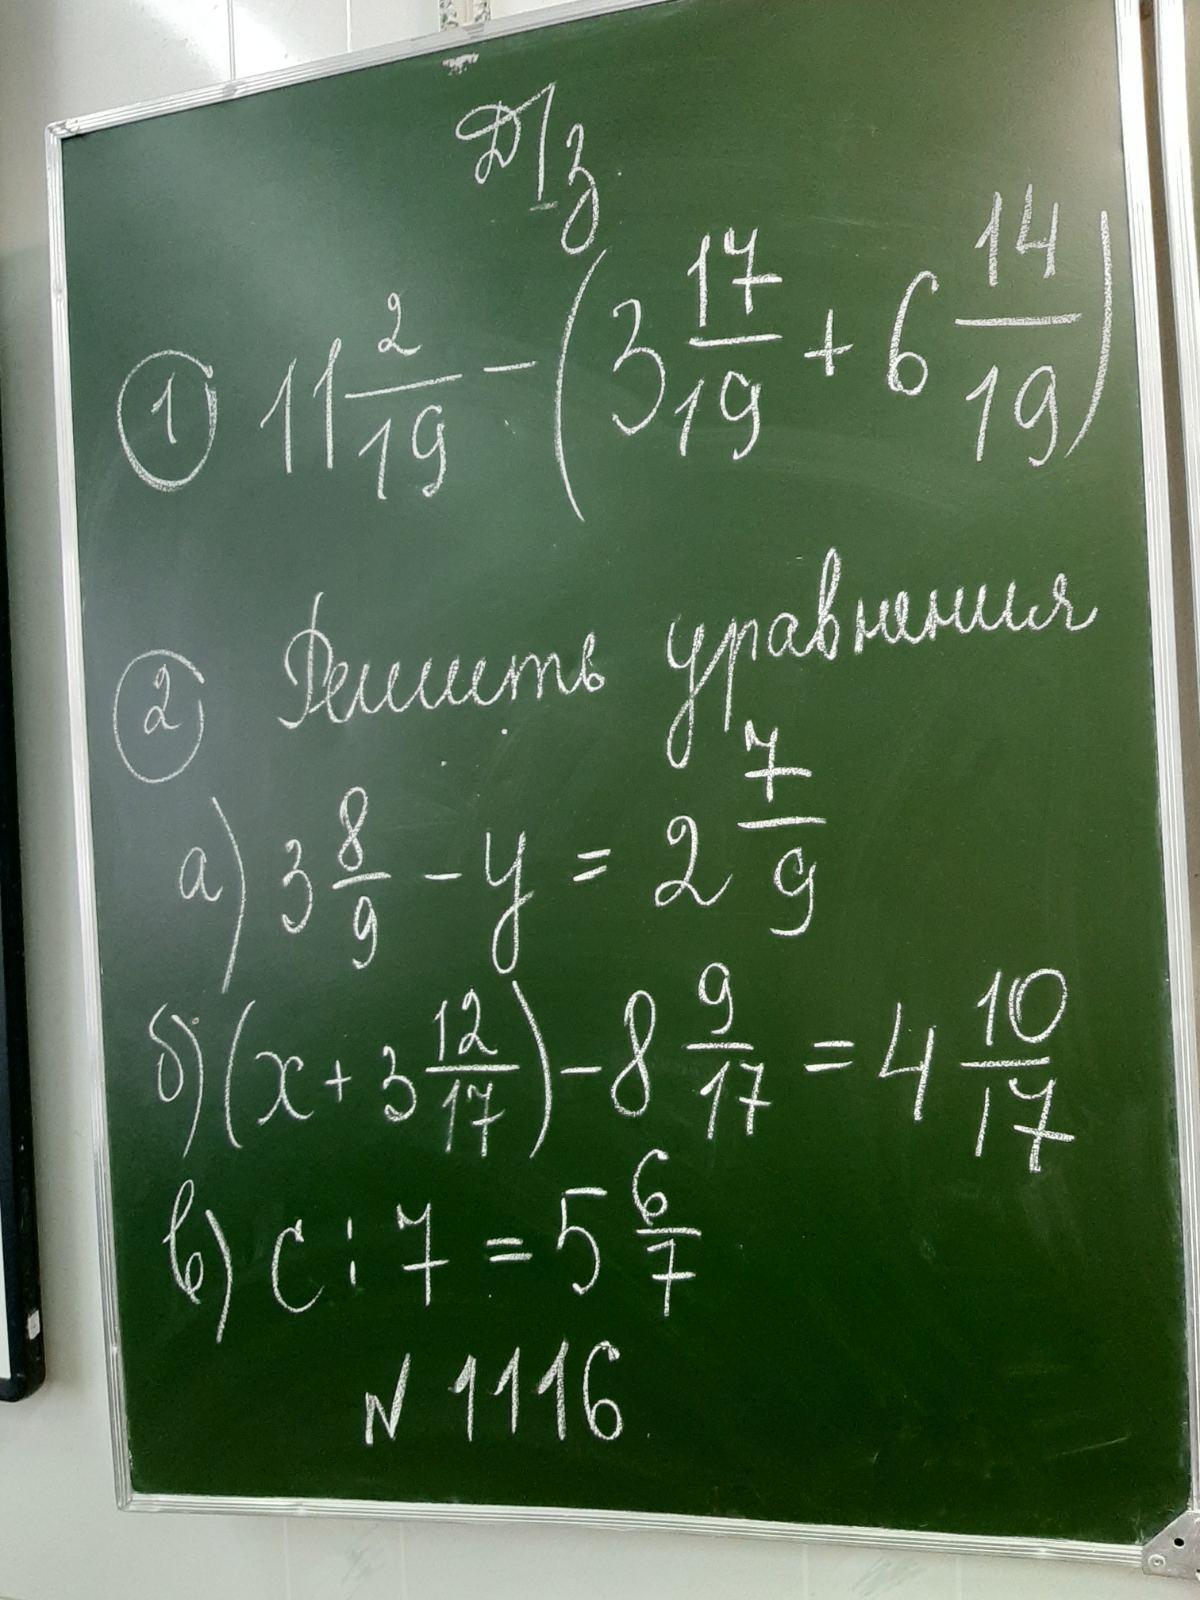 Д/з
① 11 2/19 - (3 17/19 + 6 14/19)
② Решить уравнения
а) 3 8/9 - y = 2 7/9
б) (x + 3 12/17) - 8 9/17 = 4 10/17
в) c : 7 = 5 6/7
N 1116